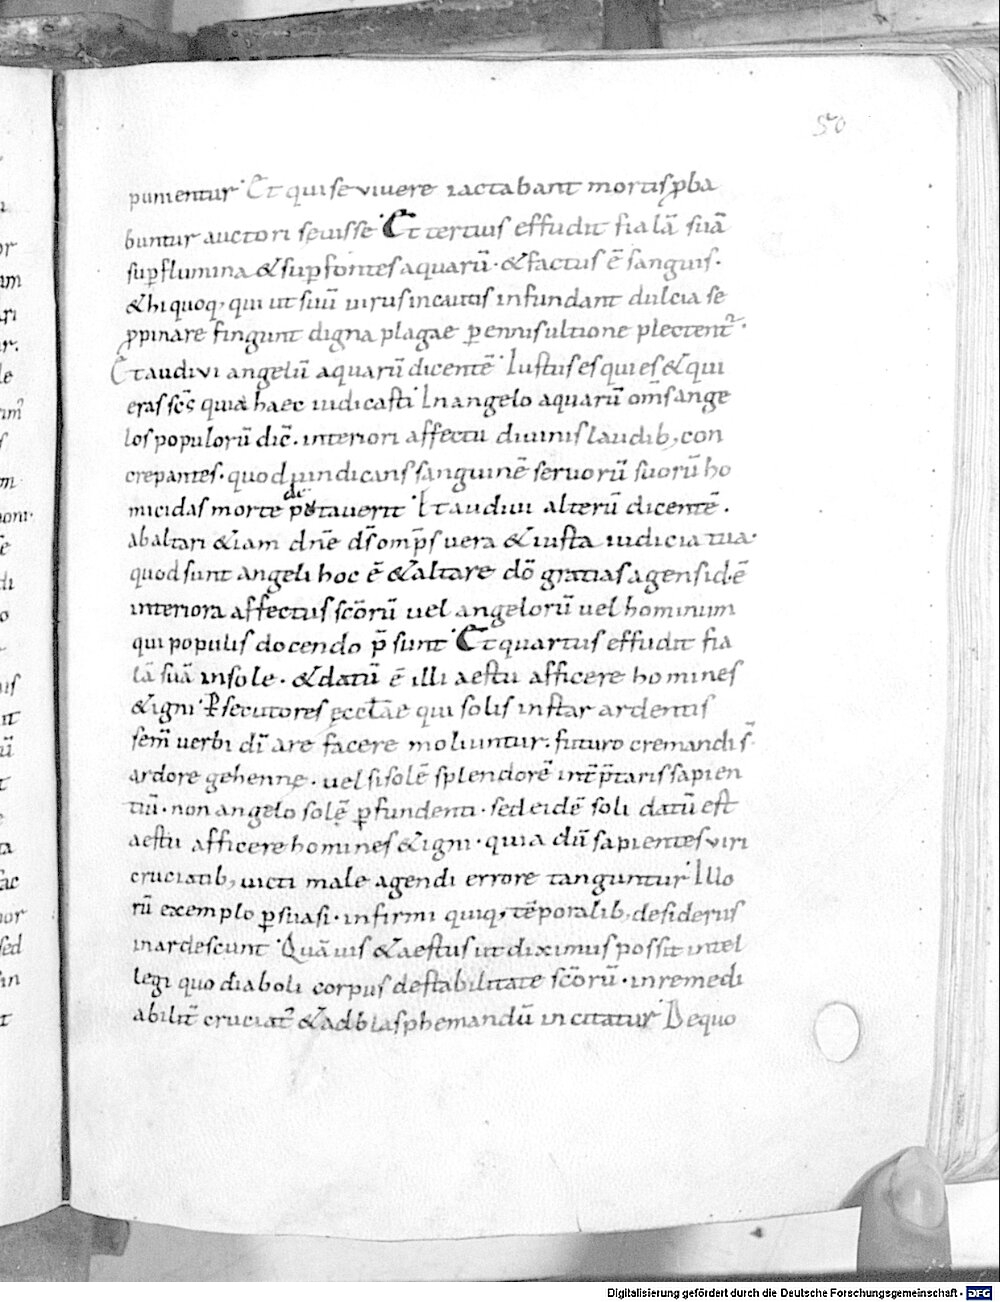 50
punientur · Et qui se vivere iactabant mortis ꝓba
buntur auctori servisse · Et tertius effudit fialā suā
suꝑ flumina & suꝑ fontes aquarū · & factus ē sanguis ·
& hi quoq; qui ut suū virus incautis infundant dulcia se
ꝓpinare fingunt digna plagae ꝑennis ultione plectent᷑ ·
Et audivi angelū aquarū dicentē · Iustus es qui es & qui
eras sc̄s quia haec iudicasti · In angelo aquarū om̄s ange
los populorū dic̄ · interiori affectu divinis laudib; con
crepantes · quod vindicans sanguinē servorū suorū ho
micidas morte potaverit · Et audivi alterū dicentē ·
de
ab altari & iam dn̄e ds̄ omp̄s vera & iusta iudicia tua ·
quod sunt angeli hoc ē & altare dō gratias agens id · ē
interiora affectus sc̄orū vel angelorū vel hominum
qui populis docendo p̄sunt · Et quartus effudit fia
lā suā in sole · & datū ē illi aestu afficere homines
& igni · ꝑsecutores ęccl̄ae qui solis instar ardentis
sem̄ verbi dī are facere moliuntur · futuro cremandi s̄ ·
ardore gehennę · vel si solē splendorē int̄p̄taris sapien
tiū · non angelo solē ꝑfundenti · sed eidē soli datū est
aestu afficere homines & igni · quia dū sapientes viri
cruciatib; victi male agendi errore tanguntur · Illo
rū exemplo ꝑsuasi · infirmi quiq; tēporalib; desideriis
inardescunt · Quāvis & aestus ut diximus possit intel
legi quo diaboli corpus de stabilitate sc̄orū · inremedi
abilit̄ cruciat᷑ & ad blasphemandū incitatur · De quo
Digitalisierung gefördert durch die Deutsche Forschungsgemeinschaft - DFG